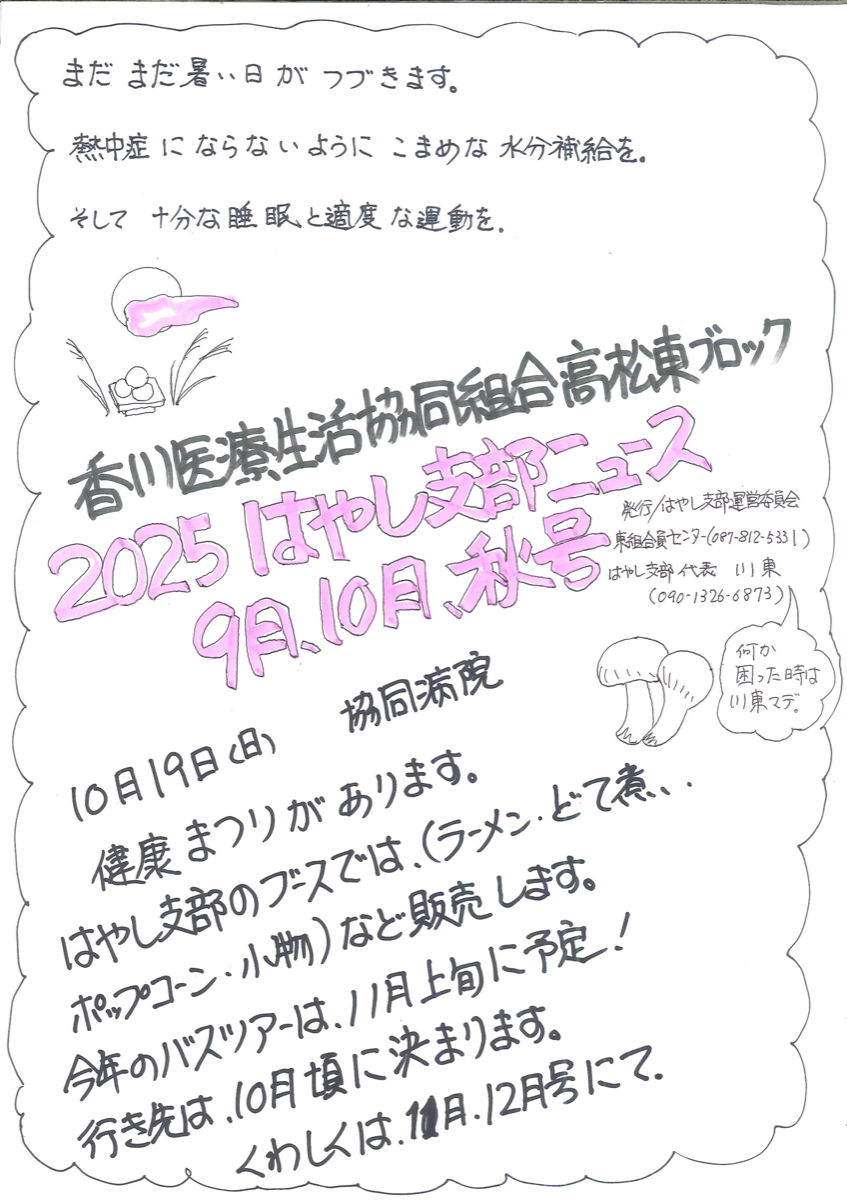 まだまだ暑い日がつづきます。
熱中症にならないようにこまめな水分補給を。
そして十分な睡眠と適度な運動を。
香川医療生活協同組合高松東ブロック
2025はやし支部ニュース
9月、10月、秋号
発行/はやし支部運営委員会
東組合員センター(087-812-5331)
はやし支部代表 川東
(090-1326-6873)
何か
困った時は
川東マデ。
10月19日(日) 協同病院
健康まつりがあります。
はやし支部のブースでは、(ラーメン・どて煮、、、
ポップコーン・小物)など販売します。
今年のバスツアーは、11月上旬に予定!
行き先は、10月頃に決まります。
くわしくは、11月、12月号にて。